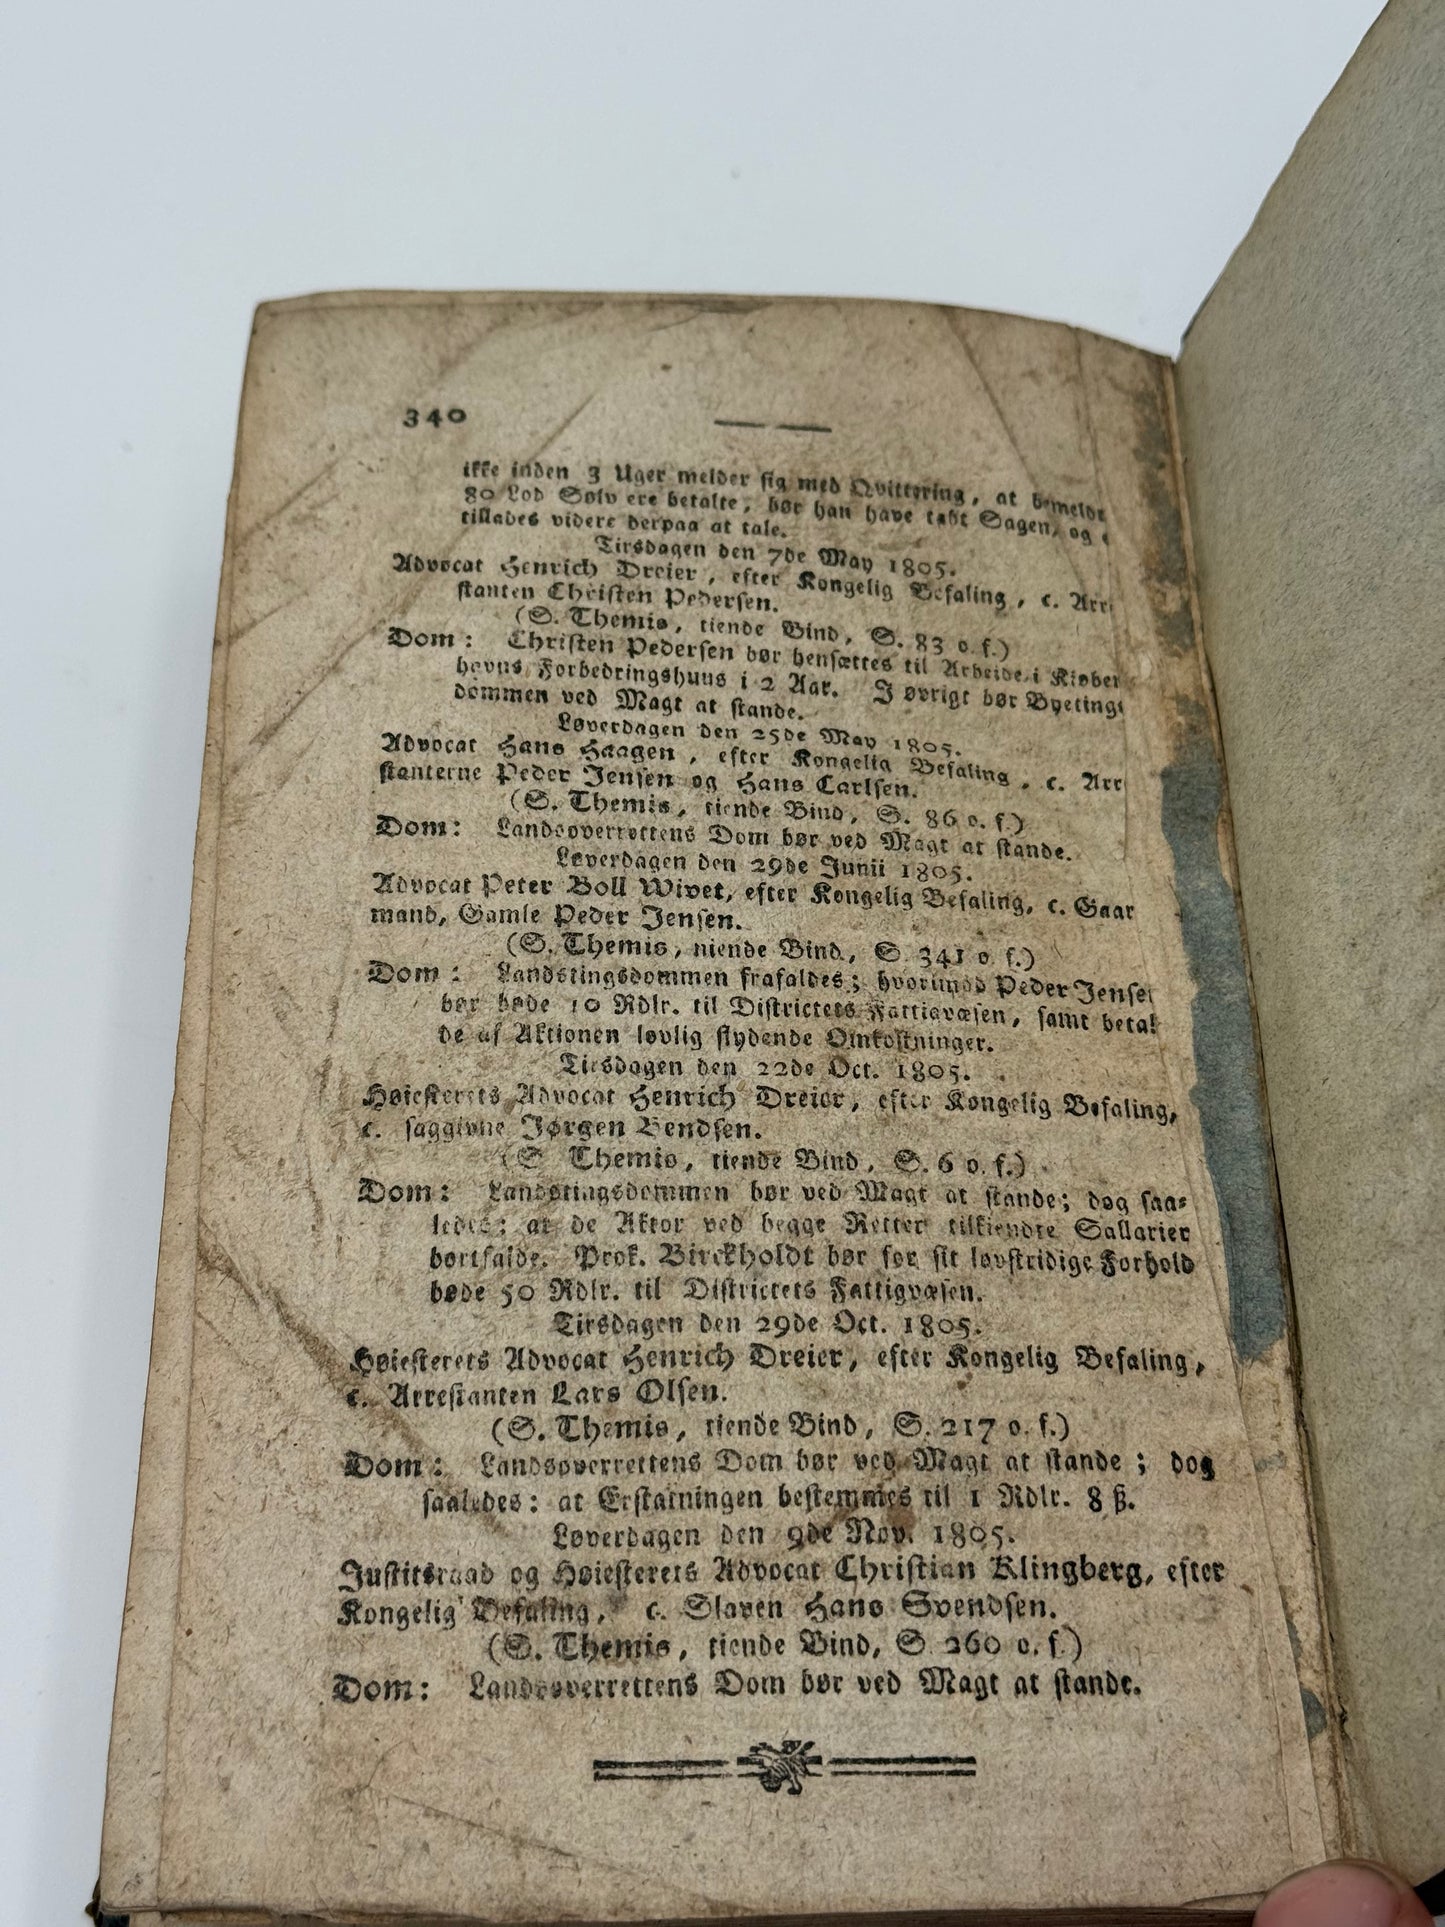 340
ikke inden 3 Uger melder sig med Qvittering, at bemeldt
80 Lod Sølv ere betalte, bør han have tabt Sagen, og
tillades videre derpaa at tale.
Tirsdagen den 7de May 1805.
Advocat Henrich Dreier, efter Kongelig Befaling, c. Arre
stanten Christen Pedersen.
(S. Themis, tiende Bind, S. 83 o. f.)
Dom: Christen Pedersen bør hensættes til Arbeide i Kiøben
havns Forbedringshuus i 2 Aar. I øvrigt bør Byetings
dommen ved Magt at stande.
Løverdagen den 25de May 1805.
Advocat Hans Haagen, efter Kongelig Befaling, c. Arre
stanterne Peder Jensen og Hans Carlsen.
(S. Themis, tiende Bind, S. 86 o. f.)
Dom: Landsoverrettens Dom bør ved Magt at stande.
Løverdagen den 29de Junii 1805.
Advocat Peter Boll Wivet, efter Kongelig Befaling, c. Gaar
mand, Gamle Peder Jensen.
(S. Themis, niende Bind, S. 341 o. f.)
Dom: Landstingsdommen frafaldes; hvorimod Peder Jensen
bør bøde 10 Rdlr. til Districtets Fattigvæsen, samt betal
de af Aktionen lovlig flydende Omkostninger.
Tirsdagen den 22de Oct. 1805.
Høiesterets Advocat Henrich Dreier, efter Kongelig Befaling,
c. saggivne Jørgen Bendsen.
(S. Themis, tiende Bind, S. 6 o. f.)
Dom: Landstingsdommen bør ved Magt at stande; dog saa-
ledes: at de Aktor ved begge Retter tilkiendte Sallarier
bortfalde. Prok. Birckholdt bør for sit lovstridige Forhold
bøde 50 Rdlr. til Districtets Fattigvæsen.
Tirsdagen den 29de Oct. 1805.
Høiesterets Advocat Henrich Dreier, efter Kongelig Befaling,
c. Arrestanten Lars Olsen.
(S. Themis, tiende Bind, S. 217 o. f.)
Dom: Landsoverrettens Dom bør ved Magt at stande; dog
saaledes: at Erstatningen bestemmes til 1 Rdlr. 8 ß.
Løverdagen den 9de Nov. 1805.
Justitsraad og Høiesterets Advocat Christian Klingberg, efter
Kongelig Befaling, c. Slaven Hans Svendsen.
(S. Themis, tiende Bind, S 260 o. f.)
Dom: Landsoverrettens Dom bør ved Magt at stande.